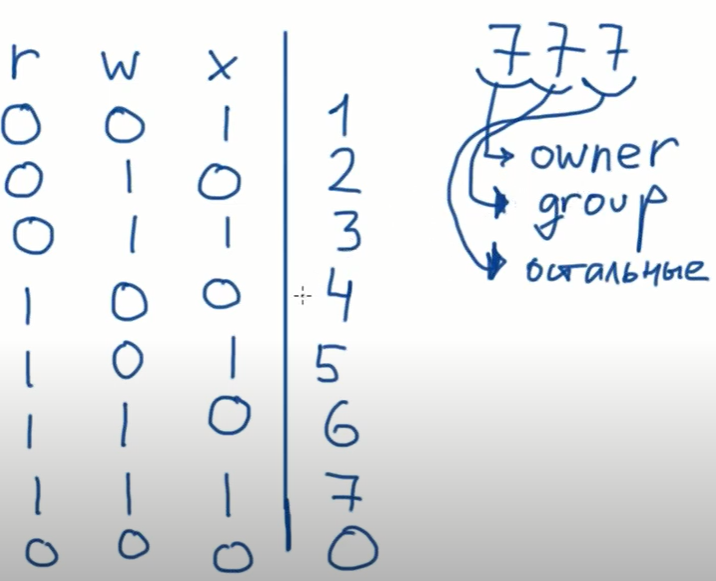 r w x
0 0 1 1
0 1 0 2
0 1 1 3
1 0 0 4
1 0 1 5
1 1 0 6
1 1 1 7
0 0 0 0
777
owner
group
остальные